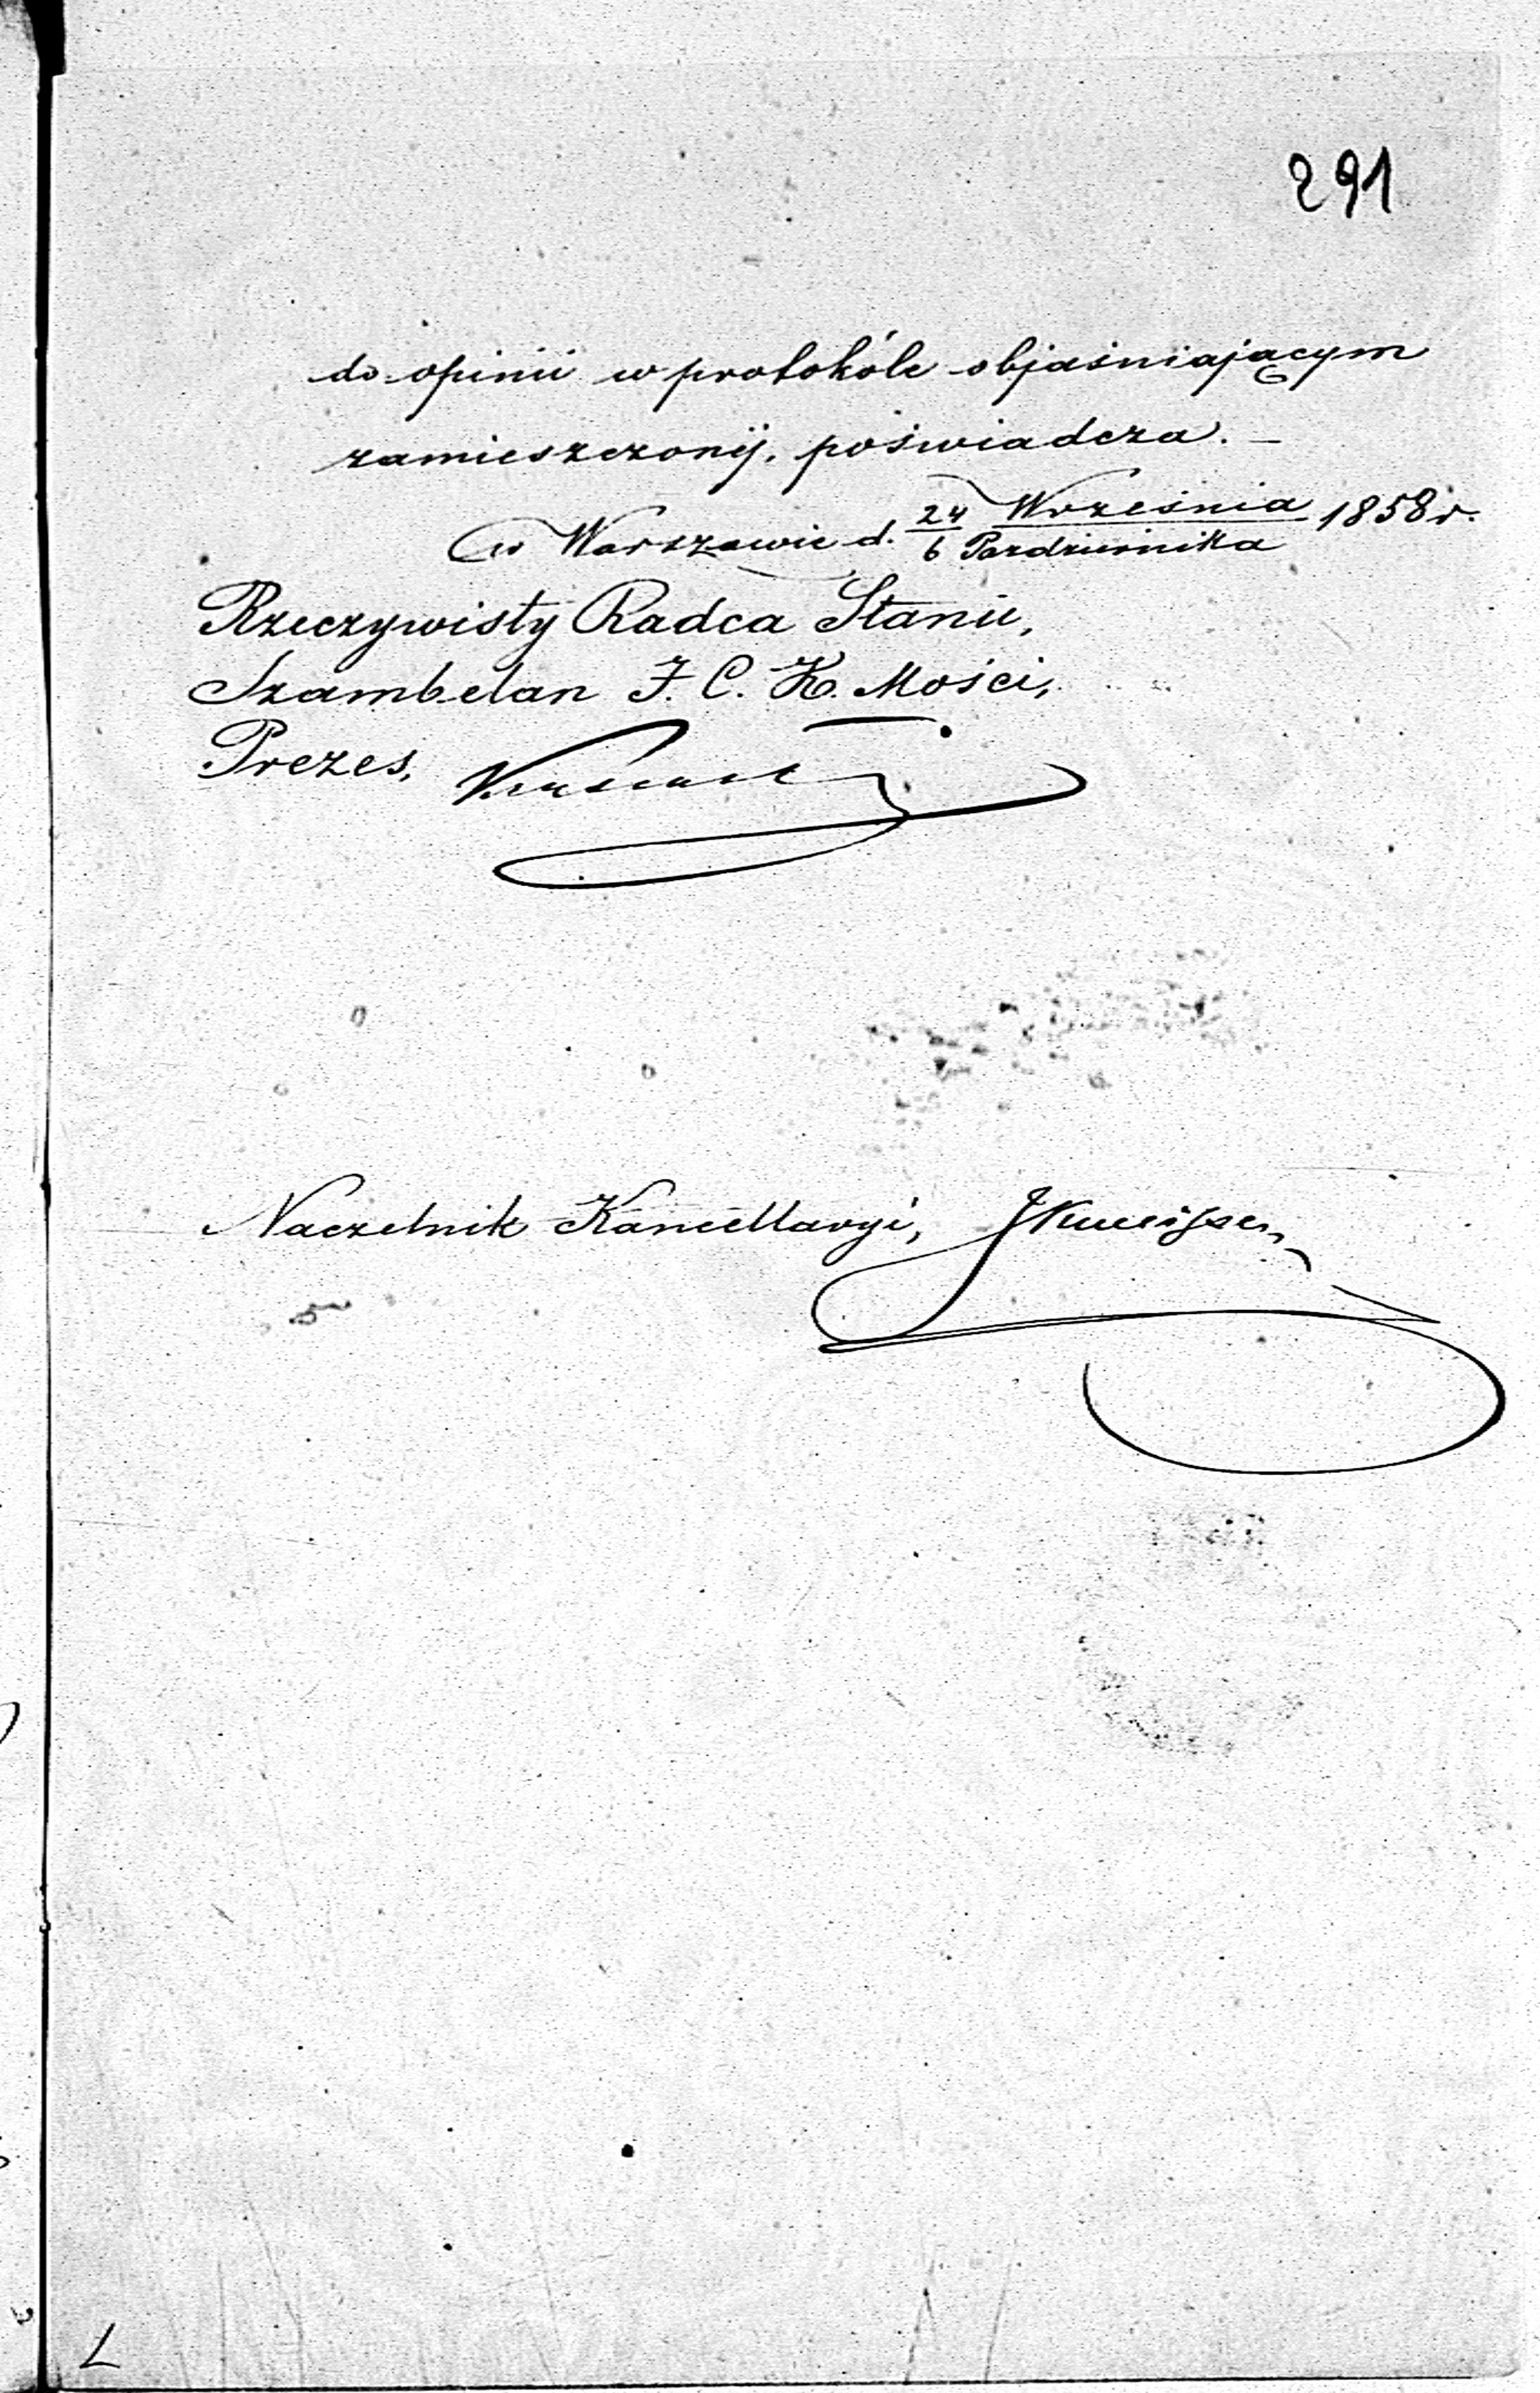 291
do opinii w protokóle objaśniającym
zamieszczonéj, poświadcza. —
w Warszawie d. 24/6 Września/Pazdziernika 1858 r.
Rzeczywisty Radca Stanu,
Szambelan J. C. K. Mości,
Prezes,
Naczelnik Kancellaryi,